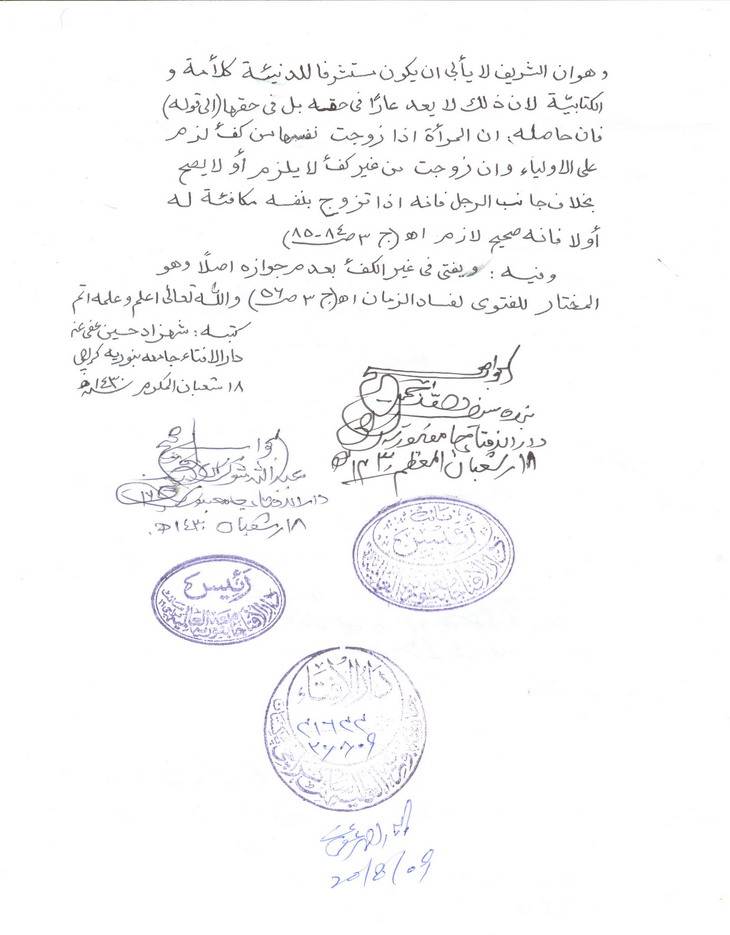 وهو ان الشريف لا يأبى ان يكون مستفرشا للدنيئة كالأمة و
الكتابيّة لان ذلك لا يعد عارًا فى حقه بل فى حقها (الى قوله)
فان حاصله: ان المرأة اذا زوجت نفسها من كفء لزم
على الاولياء وان زوجت من غير كفء لا يلزم أو لا يصح
بخلاف جانب الرجل فانه اذا تزوج بنفسه مكافئة له
أولا فانه صحيح لازم اھ (ج ٣ صـ ٨٤-٨٥)
وفيه: ويفتى فى غير الكفء بعدم جوازه اصلًا وهو
المختار للفتوى لفساد الزمان اھ (ج ٣ صـ ٥٦) والله تعالىٰ اعلم وعلمه اتم
کتبہ: شہزاد حسین عفی عنہ
دار الافتاء جامعہ بنوریہ کراچی
١٨ شعبان المکرم ١٤٣٠ھ
الجواب صحیح
دار الافتاء جامعہ بنوریہ
١٨ / شعبان المعظم ١٤٣٠ھ
الجواب صحیح
دار الافتاء جامعہ بنوریہ
١٨ / شعبان ١٤٣٠ھ
نائب رئیس
دار الافتاء جامعہ بنوریہ العالمیہ
رئیس
دار الافتاء جامعہ بنوریہ العالمیہ
دار الافتاء
20/8/09